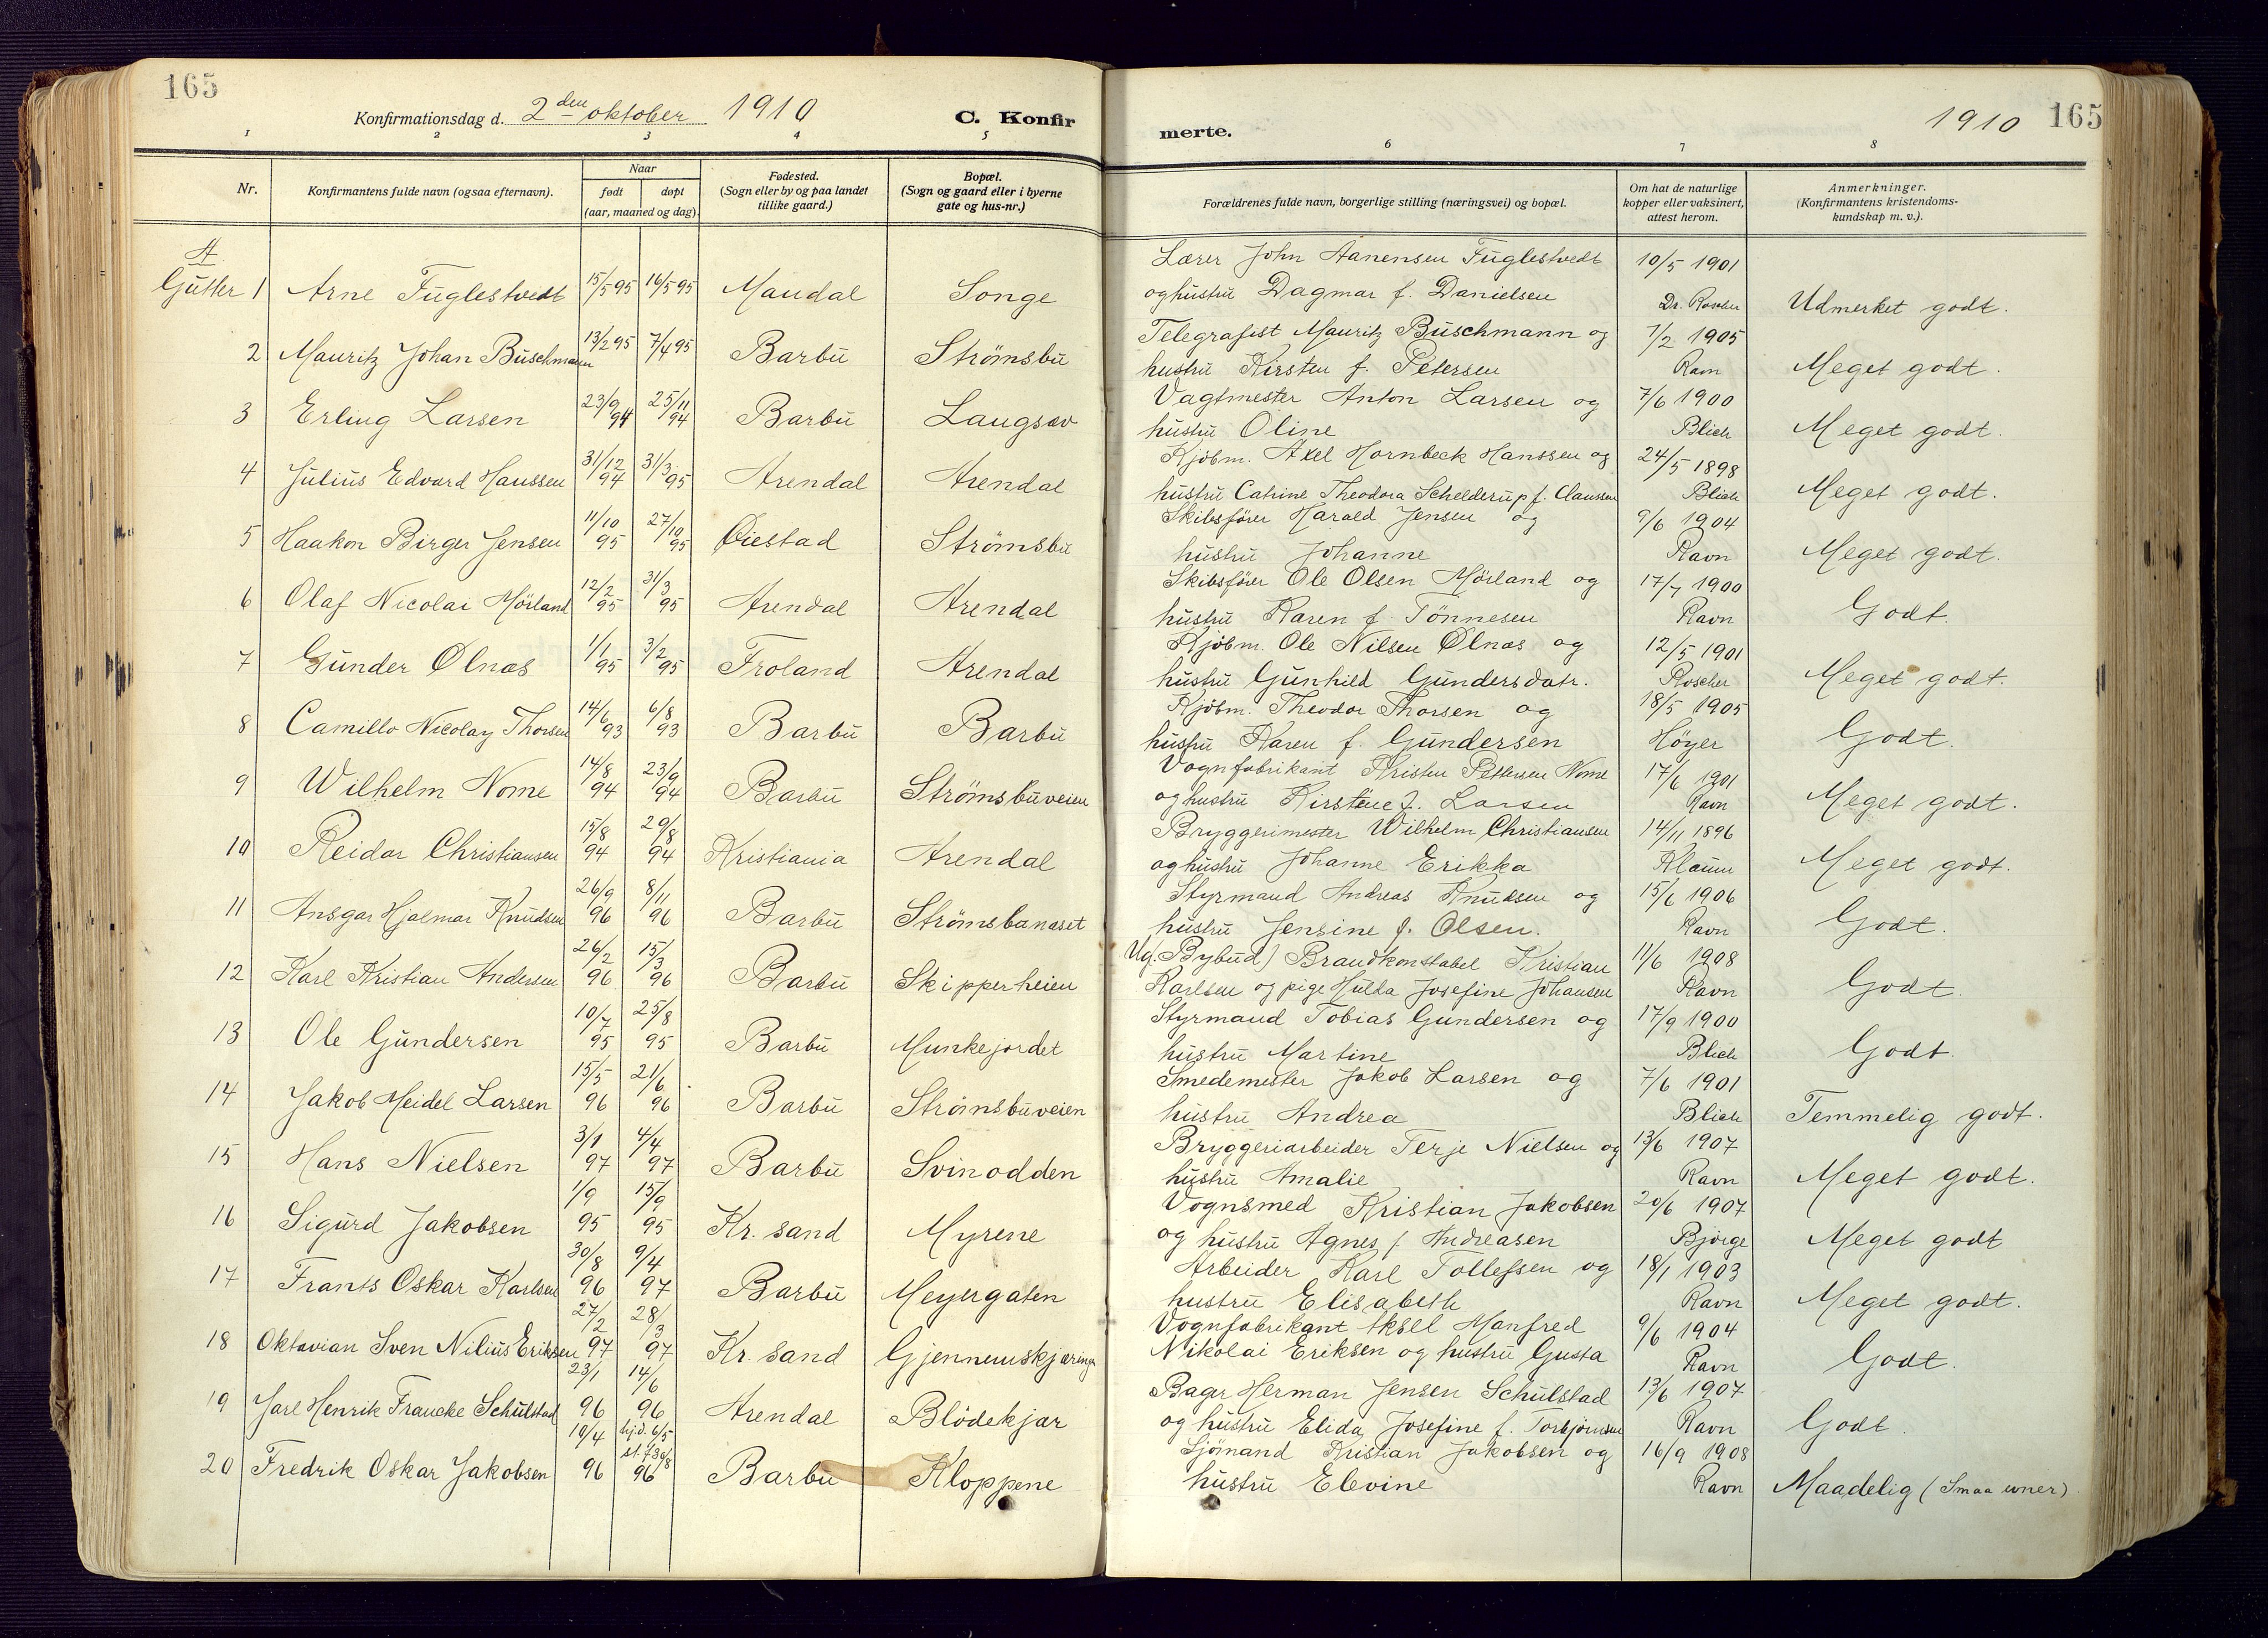 165
Konfirmationsdag d. 2den oktober 1910
C. Konfir
merte.
1910 165
1 2 3 4 5 6 7 8
Nr.
Konfirmantens fulde navn (ogsaa efternavn).
Naar
født døpt
(aar, maaned og dag).
Fødested.
(Sogn eller by og paa landet
tillike gaard.)
Bopæl.
(Sogn og gaard eller i byerne
gate og hus-nr.)
Forældrenes fulde navn, borgerlige stilling (næringsvei) og bopæl.
Om hat de naturlige
kopper eller vaksinert,
attest herom.
Anmerkninger.
(Konfirmantens kristendoms-
kundskap m. v.).
A
Gutter 1 Arne Fuglestvedt 15/5 95 16/5 95 Mandal Songe
Lærer John Aanensen Fuglestvedt 10/5 1901
og hustru Dagmar f. Danielsen Dr. Roscher Udmerket godt.
2 Mauritz Johan Buschmann 13/2 95 7/4 95 Barbu Strømsbu
Telegrafist Mauritz Buschmann og 7/2 1905
hustru Kirsten f. Petersen Ravn Meget godt.
3 Erling Larsen 23/9 94 25/11 94 Barbu Langsæv
Vagtmester Anton Larsen og 7/6 1900
hustru Oline Blich Meget godt.
4 Julius Edvard Hanssen 31/12 94 31/3 95 Arendal Arendal
Kjöbm. Axel Hornbeck Hanssen og 24/5 1898
hustru Catrine Theodora Schelderup f. Claussen Blich Meget godt.
5 Haakon Birger Jensen 11/10 95 27/10 95 Øiestad Strömsbu
Skibsfører Harald Jensen og 9/6 1904
hustru Johanne Ravn Meget godt.
6 Olaf Nicolai Mörland 12/2 95 31/3 95 Arendal Arendal
Skibsfører Ole Olsen Mörland og 17/7 1900
hustru Karen f Tönnesen Ravn Godt.
7 Gunder Ølnæs 1/1 95 3/2 95 Froland Arendal
Kjöbm. Ole Nilsen Ølnæs og 12/5 1901
hustru Gunhild Gundersdatr. Roscher Meget godt.
8 Camillo Nicolay Thorsen 14/6 93 6/8 93 Barbu Barbu
Kjöbm. Theodor Thorsen og 18/5 1905
hustru Karen f. Gundersen Höyer Godt.
9 Wilhelm Nome 14/8 94 23/9 94 Barbu Strömsbuveien
Vognfabrikant Kristen Pettersen Nome 17/6 1901
og hustru Kirstine f. Larsen Ravn Meget godt.
10 Reidar Christiansen 15/8 94 29/8 94 Kristiania Arendal
Bryggerimester Wilhelm Christiansen 14/11 1896
og hustru Johanne Erikka Klaum Meget godt.
11 Ansgar Hjalmar Knudsen 26/9 96 8/11 96 Barbu Strömsbunæset
Styrmand Andreas Knudsen og 15/6 1906
hustru Jensine f. Olsen. Ravn Godt.
12 Karl Kristian Andersen 26/2 96 15/3 96 Barbu Skipperheien
Ug. (Bybud) Brandkonstabel Kristian 11/6 1908
Karlsen og pige Hulda Josefine Johansen Ravn Godt.
13 Ole Gundersen 10/7 95 25/8 95 Barbu Munkejordet
Styrmand Tobias Gundersen og 17/9 1900
hustru Martine Blich Godt.
14 Jakob Meidel Larsen 15/5 96 21/6 96 Barbu Strömsbuveien
Smedemester Jakob Larsen og 7/6 1901
hustru Andrea Blich Temmelig godt.
15 Hans Nielsen 3/1 97 4/4 97 Barbu Svinodden
Bryggeriarbeider Terje Nielsen og 13/6 1907
hustru Amalie Ravn Meget godt.
16 Sigurd Jakobsen 1/9 95 15/9 95 Kr. sand Myrene
Vognsmed Kristian Jakobsen 20/6 1907
og hustru Agnes f Andreasen Björge Meget godt
17 Frants Oskar Karlsen 30/8 96 9/4 97 Barbu Meyergaten
Arbeider Karl Tollefsen og 18/1 1903
hustru Elisabeth Ravn Meget godt.
18 Oktavian Sven Nilius Eriksen 27/2 97 28/3 97 Kr. sand Gjennemskjæringen
Vognfabrikant Aksel Manfred 9/6 1904
Nikolai Eriksen og hustru Gusta Ravn Godt.
19 Jarl Henrik Francke Schulstad 23/1 96 14/6 96 Arendal Blödekjær
Bager Herman Jensen Schulstad 13/6 1907
og hustru Elida Josefine f. Torbjörnsen Ravn Godt.
20 Fredrik Oskar Jakobsen 10/4 96 hj.d. 6/5 st. f. 30/8 96 Barbu Kloppene
Sjömand Kristian Jakobsen og 16/9 1908
hustru Elevine Ravn Maadelig (Smaa evner)